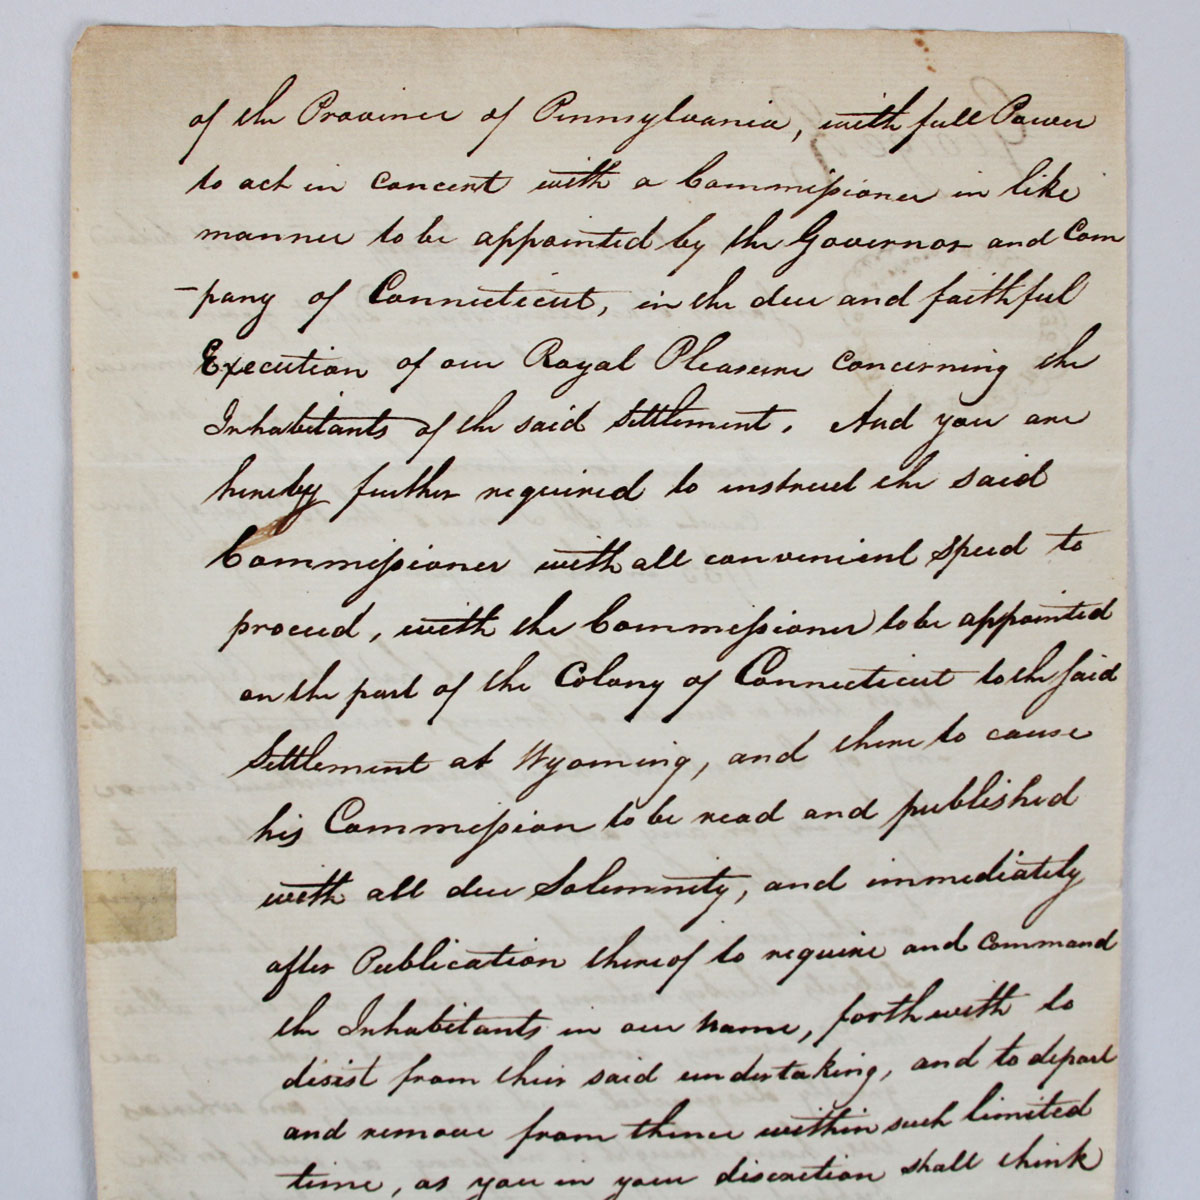 of the Province of Pennsylvania, with full Power
to act in concert with a Commissioner in like
manner to be appointed by the Governor and Com
-pany of Connecticut, in the due and faithful
Execution of our Royal Pleasure concerning the
Inhabitants of the said Settlement. And you are
hereby further required to instruct the said
Commissioner with all convenient Speed to
proceed, with the Commissioner to be appointed
on the part of the Colony of Connecticut to the said
Settlement at Wyoming, and there to cause
his Commission to be read and published
with all due Solemnity, and immediately
after Publication thereof to require and command
the Inhabitants in our name, forthwith to
desist from their said undertaking, and to depart
and remove from thence within such limited
time, as you in your discretion shall think